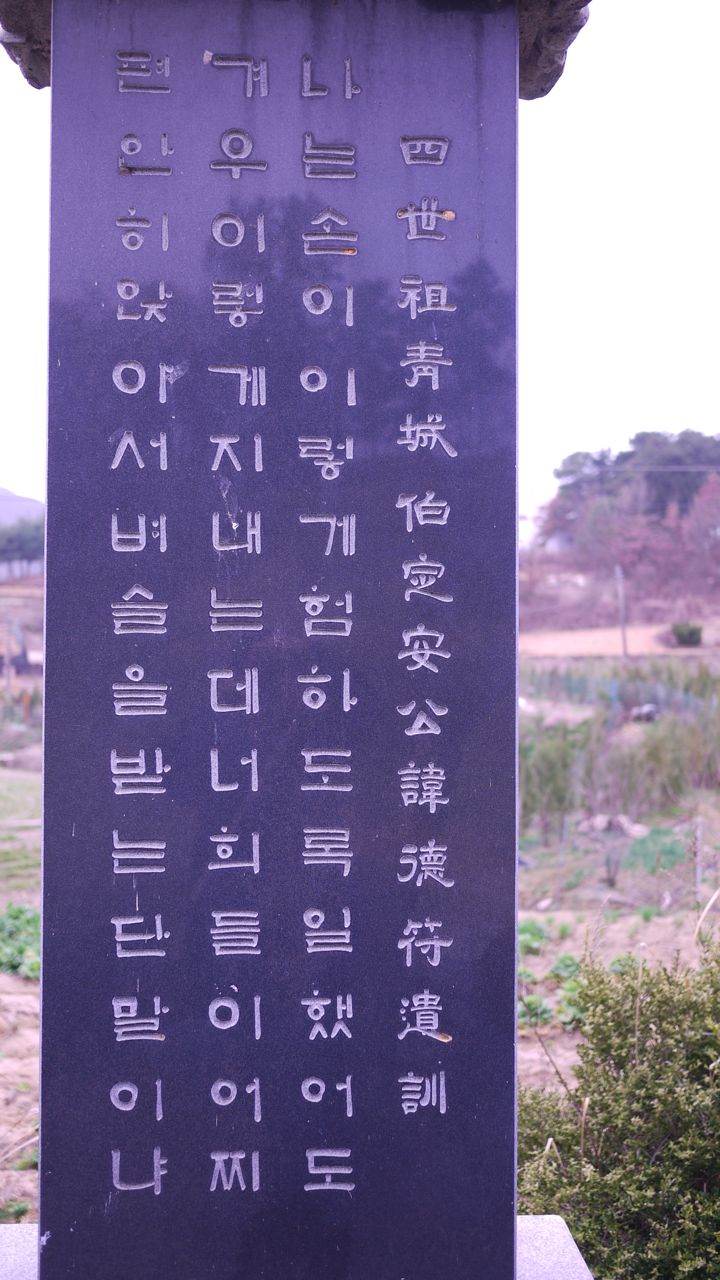 四世祖青城伯定安公諱德符遺訓
나는손이이렇게험하도록일했어도
겨우이렇게지내는데너희들이어찌
편안히앉아서벼슬을받는단말이냐